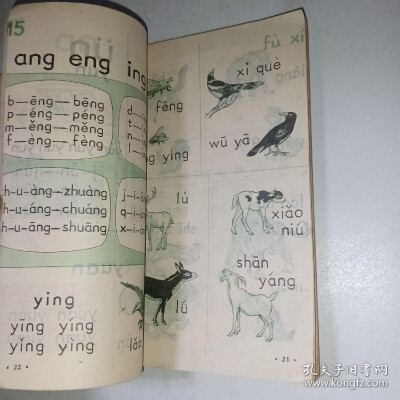 15
ang eng ing
b—ēng—bēng
p—éng—péng
m—ěng—měng
f—èng—fèng
d—
t—
n—
l—
h-u-àng-zhuàng
h-u-áng-chuáng
h-u-āng-shuāng
j-i-
q-i-
x-i-
ying
yīng yíng
yǐng yìng
·22·
fù xí
fēng
xǐ què
ying
wū yā
lù
xiǎo
niú
shān
yáng
lú
lǎo
·23·
孔夫子旧书网
www.kongfz.com